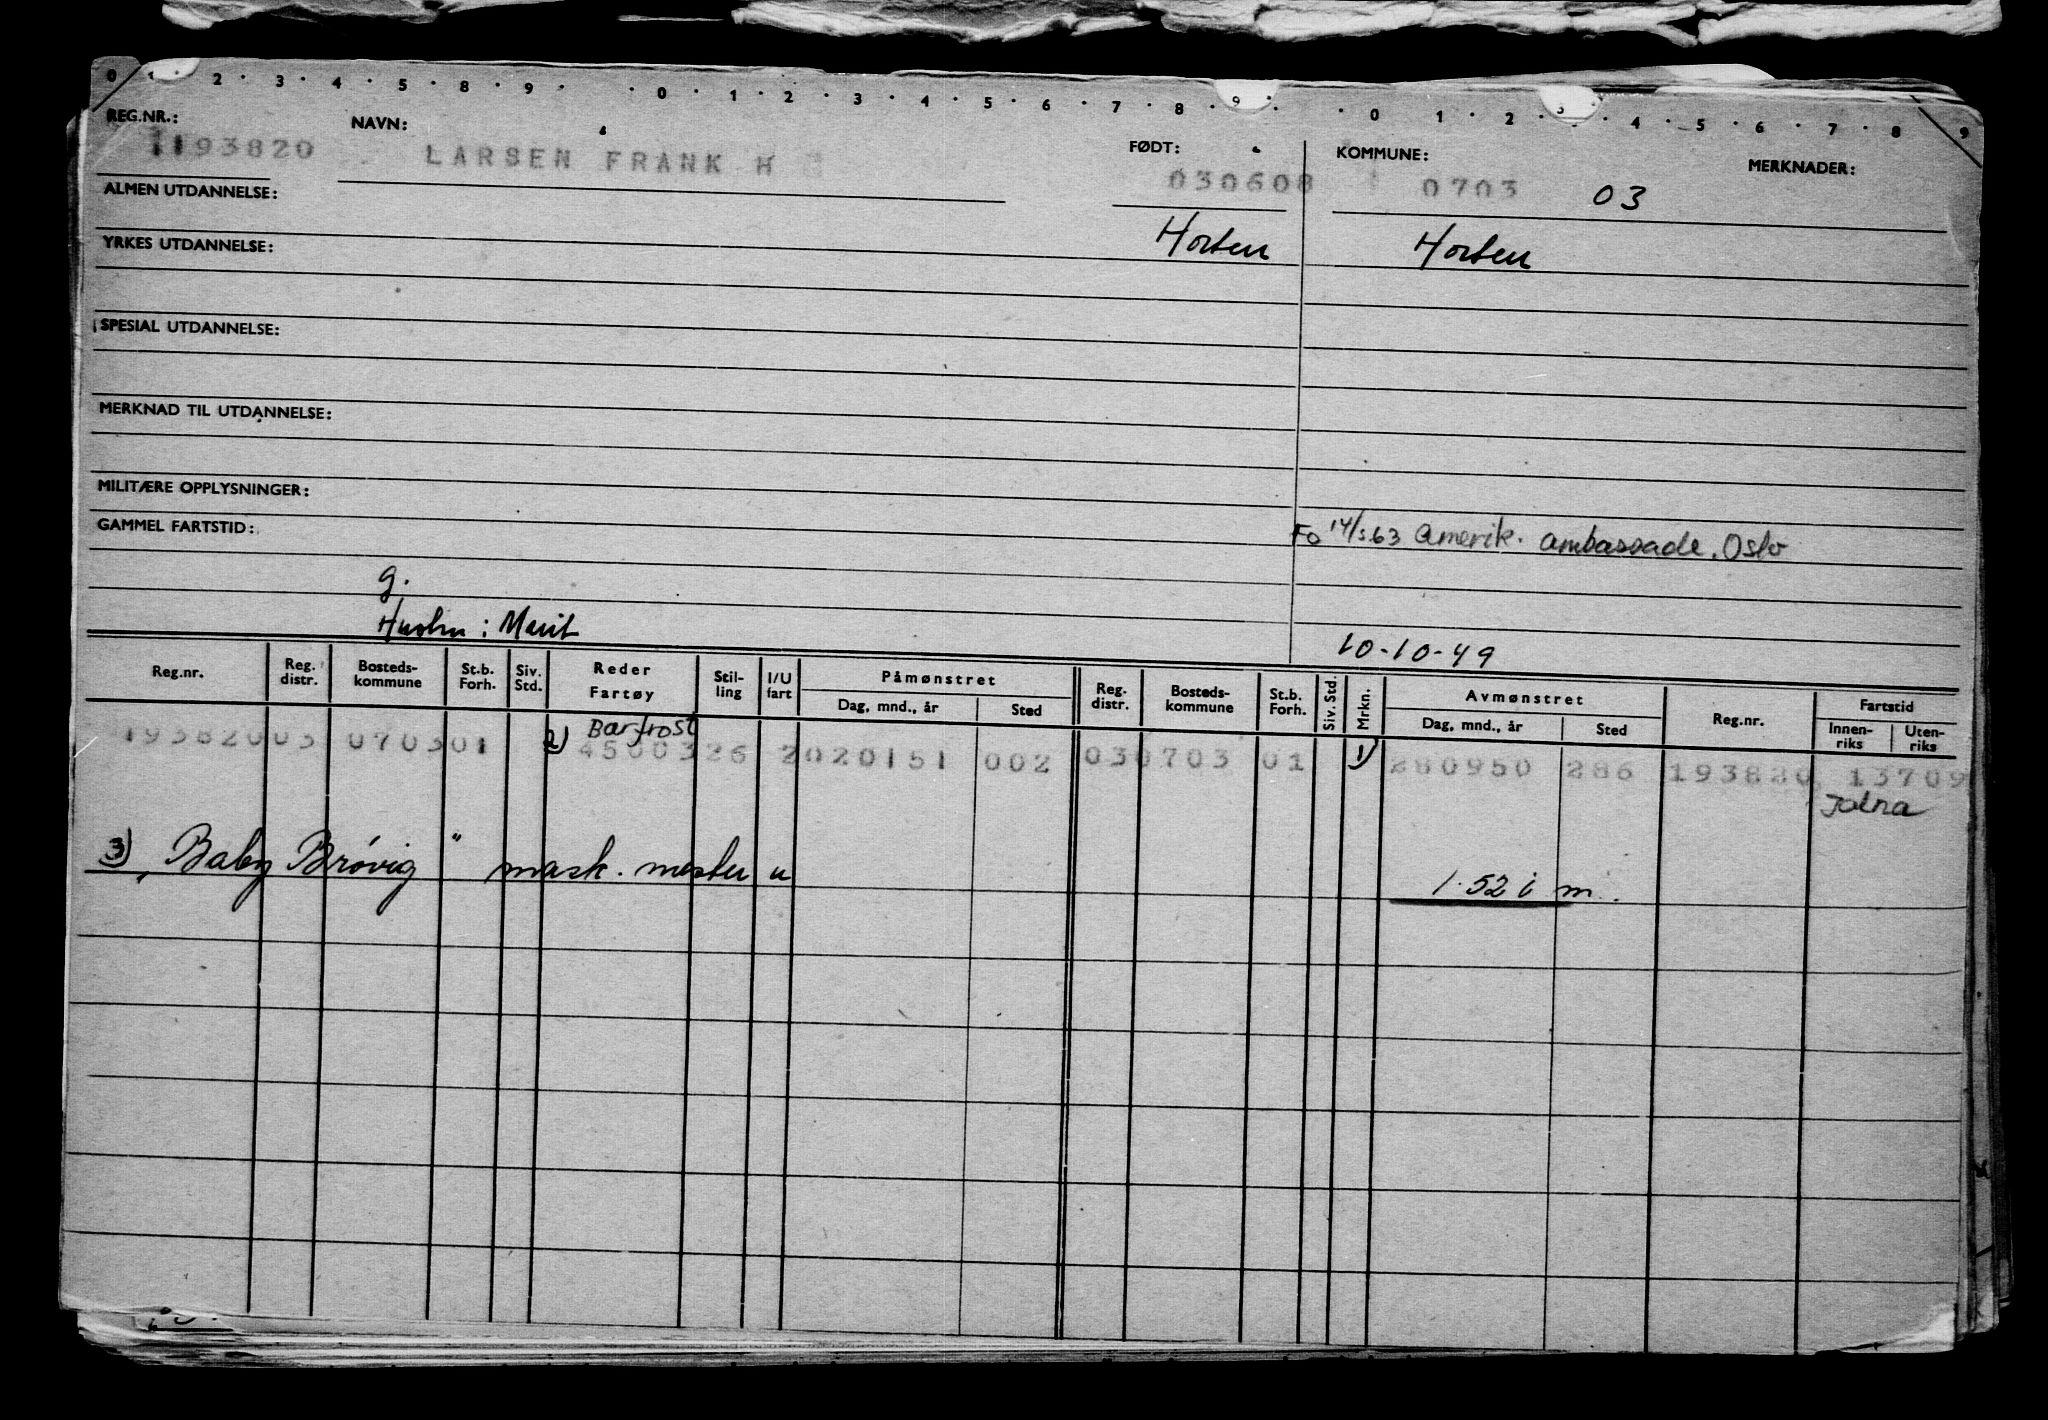 0 1 · 2 · 3 · 4 · 5 · 8 · 9 · · 0 · 1 · 2 · 3 · 4 · 5 · 6 · 7 · 8 · 9 · · 0 · 1 · 2 · 3 · 4 · 5 · 6 · 7 · 8 · 9
REG.NR.: NAVN: FØDT: KOMMUNE: MERKNADER:
1193820 LARSEN FRANK H 030608 0703 03
ALMEN UTDANNELSE:
Horten Horten
YRKES UTDANNELSE:
SPESIAL UTDANNELSE:
MERKNAD TIL UTDANNELSE:
MILITÆRE OPPLYSNINGER:
GAMMEL FARTSTID:
Fo 14/5.63 Amerik. ambassade. Oslo
g.
Hustru : Marit
10-10-49
Reg.nr. Reg. distr. Bosteds-kommune St.b. Forh. Siv. Std. Reder Fartøy Stil-ling I/U fart Påmønstret Dag, mnd., år Sted Reg. distr. Bosteds-kommune St.b. Forh. Siv. Std. Mrkn. Avmønstret Dag, mnd., år Sted Reg.nr. Fartstid Innen-riks Uten-riks
Barfrost
193820 03 0703 01 2) 4500326 2 020151 002 03 0703 01 1) 280950 286 193820 13709
Jalna
3) "Baby Brøvig" mask. mester u 1.52 i m.